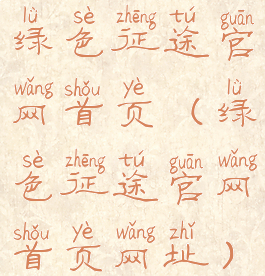 lǜ sè zhēng tú guān
绿色征途官
wǎng shǒu yè lǜ
网首页（绿
sè zhēng tú guān wǎng
色征途官网
shǒu yè wǎng zhǐ
首页网址）